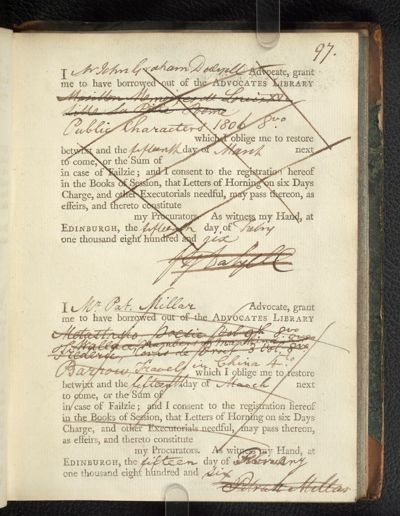 97.
I Mr John Graham Dalyell Advocate, grant
me to have borrowed out of the Advocates Library
Public Characters 1806 8vo
which I oblige me to restore
betwixt and the fifteenth day of March next
to come, or the Sum of
in case of Failzie; and I consent to the registration hereof
in the Books of Session, that Letters of Horning on six Days
Charge, and other Executorials needful, may pass thereon, as
effeirs, and thereto constitute
my Procurators. As witness my Hand, at
Edinburgh, the fifteenth day of Febry
one thousand eight hundred and six
I Mr. Pat. Millar Advocate, grant
me to have borrowed out of the Advocates Library
Barrow Travels in China 4to
which I oblige me to restore
betwixt and the fifteen day of March next
to come, or the Sum of
in case of Failzie; and I consent to the registration hereof
in the Books of Session, that Letters of Horning on six Days
Charge, and other Executorials needful, may pass thereon,
as effeirs, and thereto constitute
my Procurators. As witness my Hand, at
Edinburgh, the fifteen day of February
one thousand eight hundred and six
Millar